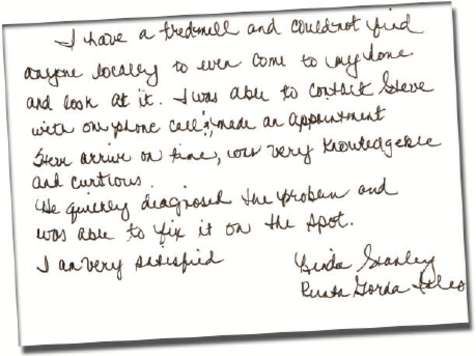 I have a tredmell and could not find
anyone locally to even come to my home
and look at it. I was able to contact Steve
with one phone call, made an appointment
Steve arrive on time, was very knowledgeble
and curtious.
He quickly diagnosed the problem and
was able to fix it on the spot.
I am very satisfied
Linda Stanley
Punta Gorda Isles